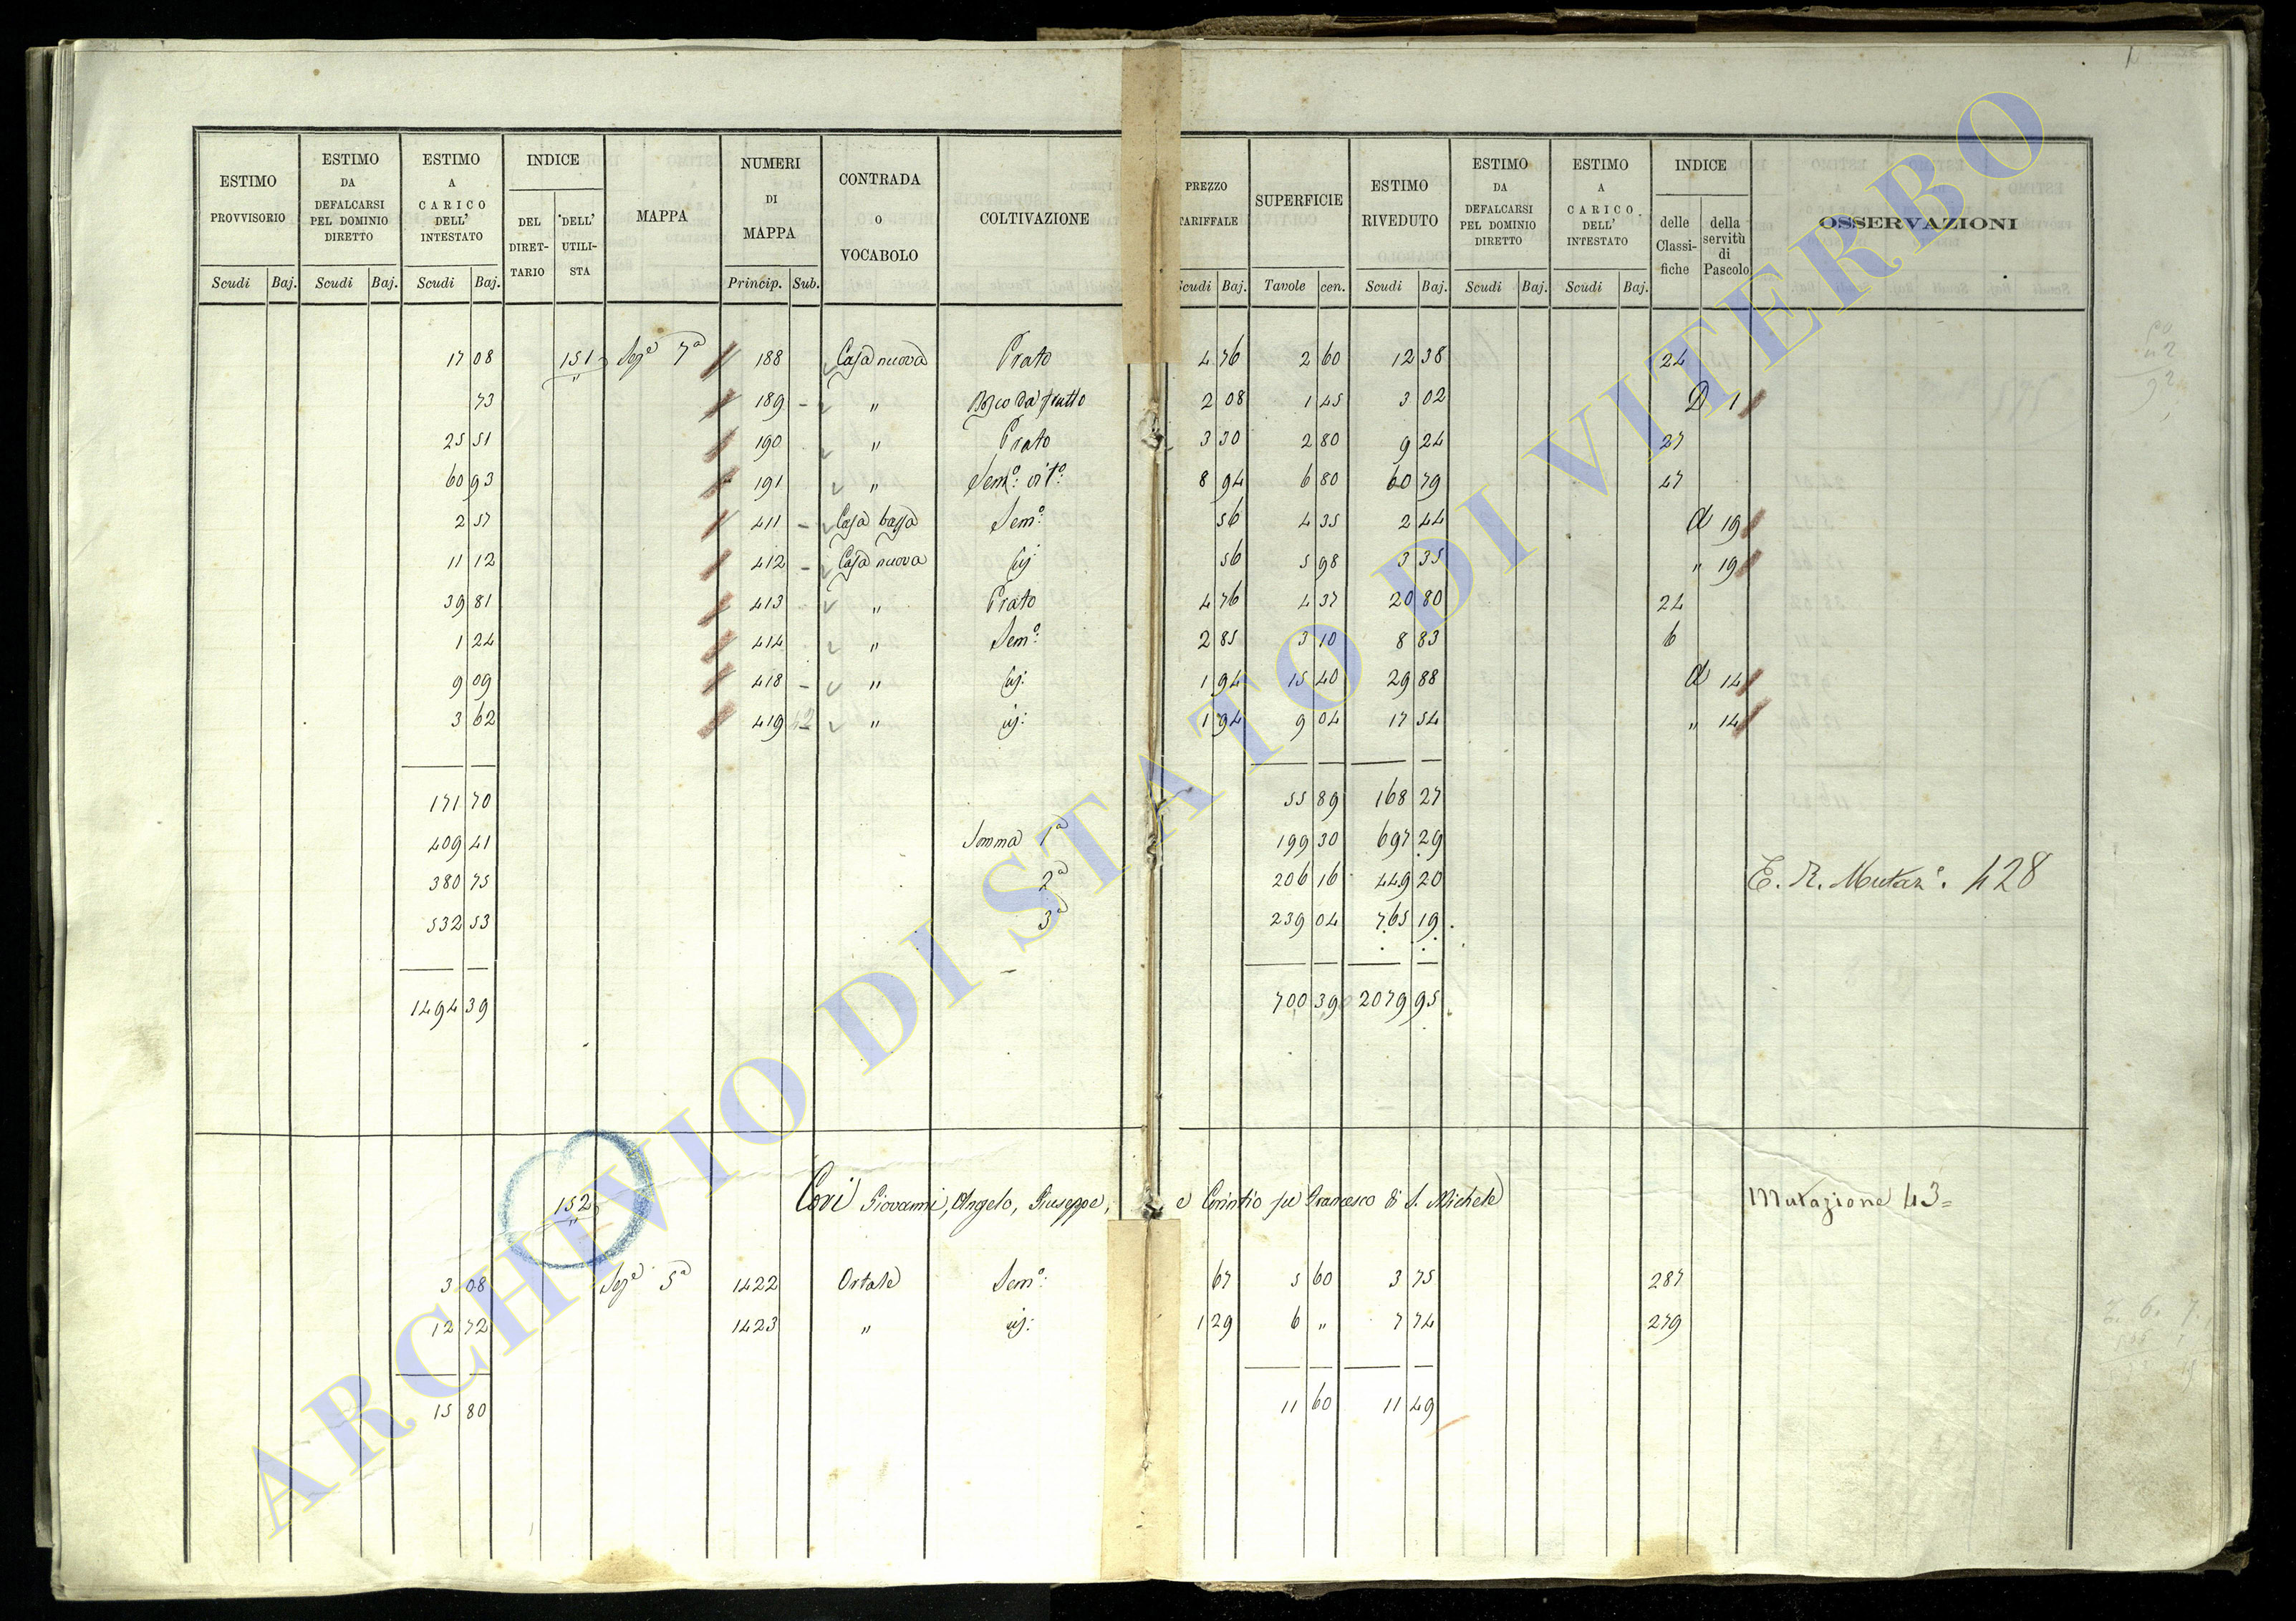 ESTIMO PROVVISORIO Scudi Baj.
ESTIMO DA DEFALCARSI PEL DOMINIO DIRETTO Scudi Baj.
ESTIMO A CARICO DELL' INTESTATO Scudi Baj.
INDICE DEL DIRET-TARIO DELL' UTILI-STA
MAPPA
NUMERI DI MAPPA Princip. Sub.
CONTRADA O VOCABOLO
COLTIVAZIONE
PREZZO TARIFFALE Scudi Baj.
SUPERFICIE Tavole cen.
ESTIMO RIVEDUTO Scudi Baj.
ESTIMO DA DEFALCARSI PEL DOMINIO DIRETTO Scudi Baj.
ESTIMO A CARICO DELL' INTESTATO Scudi Baj.
INDICE delle Classi-fiche della servitù di Pascolo
OSSERVAZIONI
17 08 151 Sez.e 7a 188 Casa nuova Prato 4 76 2 60 12 38 24
73 189 – " Bosco da frutto 2 08 1 45 3 02 D 1
25 51 190 " Prato 3 30 2 80 9 24 27
60 93 191 " Sem.o vit.o 8 94 6 80 60 79 47
2 57 411 – Casa bassa Sem.o 56 4 35 2 44 d 19
11 12 412 – Casa nuova id: 56 5 98 3 35 " 19
39 81 413 " Prato 4 76 4 37 20 80 24
1 24 414 " Sem.o 2 85 3 10 8 83 6
9 09 418 – " id: 1 94 15 40 29 88 d 14
3 62 419 – " id: 1 94 9 04 17 54 " 14
171 70 55 89 168 27
409 41 Somma 1a 199 30 697 29
380 75 2a 206 16 449 20 E. R. Mutaz.e 428
532 53 3a 239 04 765 19
1494 39 700 39 2079 95
152 Cori Giovanni, Angelo, Giuseppe, e Corintio fu Francesco di S. Michele Mutazione 43=
3 08 Sez.e 5a 1422 Ortale Sem.o 67 5 60 3 75 287
12 72 1423 " id: 1 29 6 " 7 74 279
15 80 11 60 11 49
ARCHIVIO DI STATO DI VITERBO